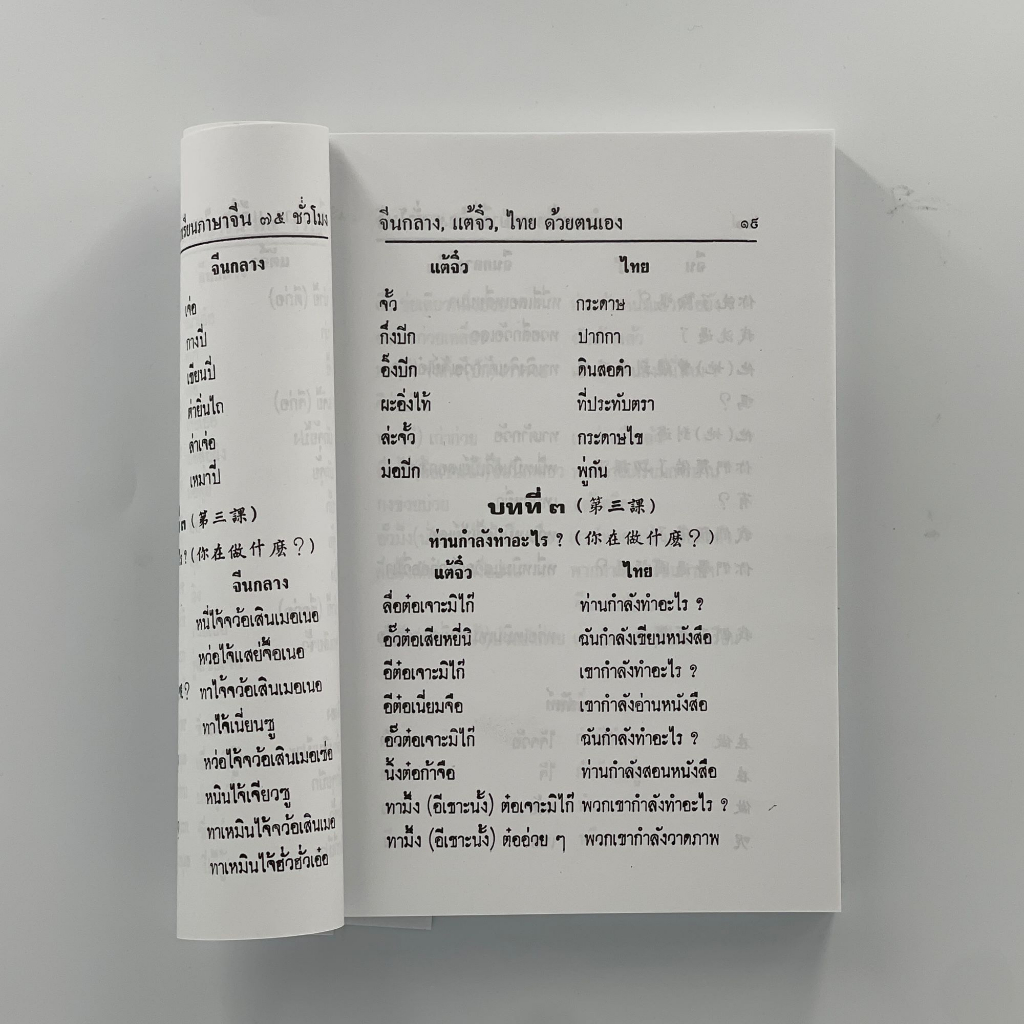 เรียนภาษาจีน ๗๕ ชั่วโมง
จีนกลาง
เจ่อ
กางปี่
เชียนปี่
ต่ายิ่นไถ
ล่าเจ่อ
เหมาปี่
๓ (第三課)
? (你在做什麼?)
จีนกลาง
หนี่ไจ้จว้อเสินเมอเนอ
หว่อไจ้แสย่จื๊อเนอ
ทาไจ้จว้อเสินเมอเนอ
ทาไจ้เนี่ยนชู
หว่อไจ้จว้อเสินเมอเซ่อ
หนินไจ้เจียวชู
ทาเหมินไจ้จว้อเสินเมอ
ทาเหมินไจ้ฮั่วฮั่วเอ๋อ
จีนกลาง, แต้จิ๋ว, ไทย ด้วยตนเอง ๑๙
แต้จิ๋ว ไทย
จั้ว กระดาษ
กึ่งบีก ปากกา
อิ๊งบีก ดินสอดำ
ผะอิ่งไท้ ที่ประทับตรา
ล่ะจั้ว กระดาษไข
ม่อบีก พู่กัน
บทที่ ๓ (第三課)
ท่านกำลังทำอะไร ? (你在做什麼?)
แต้จิ๋ว ไทย
ลื่อต๋อเจาะมิไก๊ ท่านกำลังทำอะไร ?
อั๊วต๋อเสียหยี่นิ ฉันกำลังเขียนหนังสือ
อีต๋อเจาะมิไก๊ เขากำลังทำอะไร ?
อีต๋อเนี่ยมจือ เขากำลังอ่านหนังสือ
อั๊วต๋อเจาะมิไก๊ ฉันกำลังทำอะไร ?
นิ้งต๋อก้าจือ ท่านกำลังสอนหนังสือ
ทามิ๊ง (อีเชาะนั้ง) ต๋อเจาะมิไก๊ พวกเขากำลังทำอะไร ?
ทามิ๊ง (อีเชาะนั้ง) ต๋ออ่วย ๆ พวกเขากำลังวาดภาพ